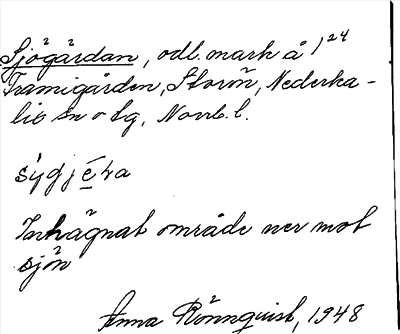 Sjögärdan, odl. mark å 1²⁴
Framigården, Storön, Nederka-
lix sn o tg, Norrb. l.
Inhägnat område ner mot
sjön
Anna Rönnquist, 1948